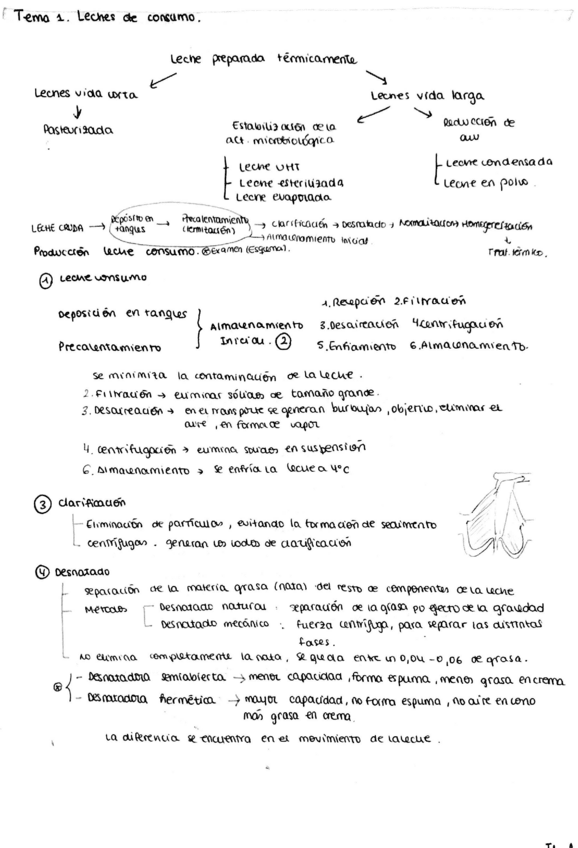 Tema 1. Leches de consumo.
Leche preparada térmicamente
Leches vida corta
Leches vida larga
Pasteurizada
Estabilización de la
act. microbiológica
Reducción de
aw
Leche UHT
Leche esterilizada
Leche evaporada
Leche condensada
Leche en polvo.
LECHE CRUDA → Depósito en tanques → Precalentamiento (termitación) → Clarificación → Desnatado → Normalitación → Homogeneitación
→ Almacenamiento inicial
Trat. térmico.
Producción leche consumo. Examen (Esquema).
① Leche consumo
Deposición en tanques
Precalentamiento
Almacenamiento
Inicial. ②
1. Recepción 2. Filtración
3. Desaireación 4 Centrifugación
5. Enfriamiento 6. Almacenamiento.
Se minimiza la contaminación de la leche.
2. Filtración → eliminar sólidos de tamaño grande.
3. Desaireación → en el transporte se generan burbujas, objetivo, eliminar el
aire, en forma de vapor
4. Centrifugación → elimina sólidos en suspensión
6. Almacenamiento → se enfría la leche a 4°C
③ Clarificación
Eliminación de partículas, evitando la formación de sedimento
centrífugas. generan los lodos de clarificación
④ Desnatado
separación de la materia grasa (nata) del resto de componentes de la leche
Métodos
Desnatado natural. separación de la grasa po efecto de la gravedad
Desnatado mecánico: fuerza centrífuga, para separar las distintas
fases.
no elimina completamente la nata, se queda entre un 0,04 - 0,06 de grasa.
- Desnatadora semiabierta → menor capacidad, forma espuma, menor grasa en crema
- Desnatadora hermética → mayor capacidad, no forma espuma, no aire en cono
más grasa en crema
La diferencia se encuentra en el movimiento de la leche.